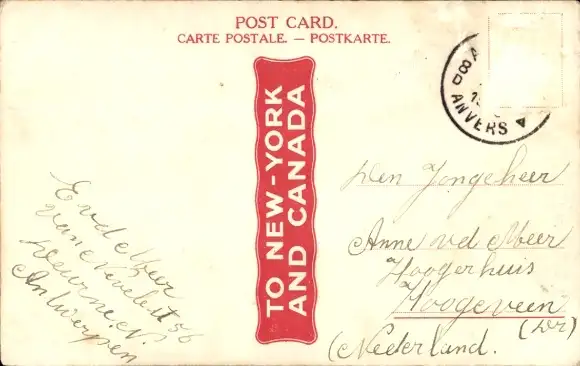 POST CARD.
CARTE POSTALE. — POSTKARTE.
TO NEW-YORK
AND CANADA
ANVERS
Den Jongeheer
Anne vd Meer
Hoogerhuis
Hoogeveen
(Dr)
(Nederland.
E vd Meer
Deurne. N.
Antwerpen